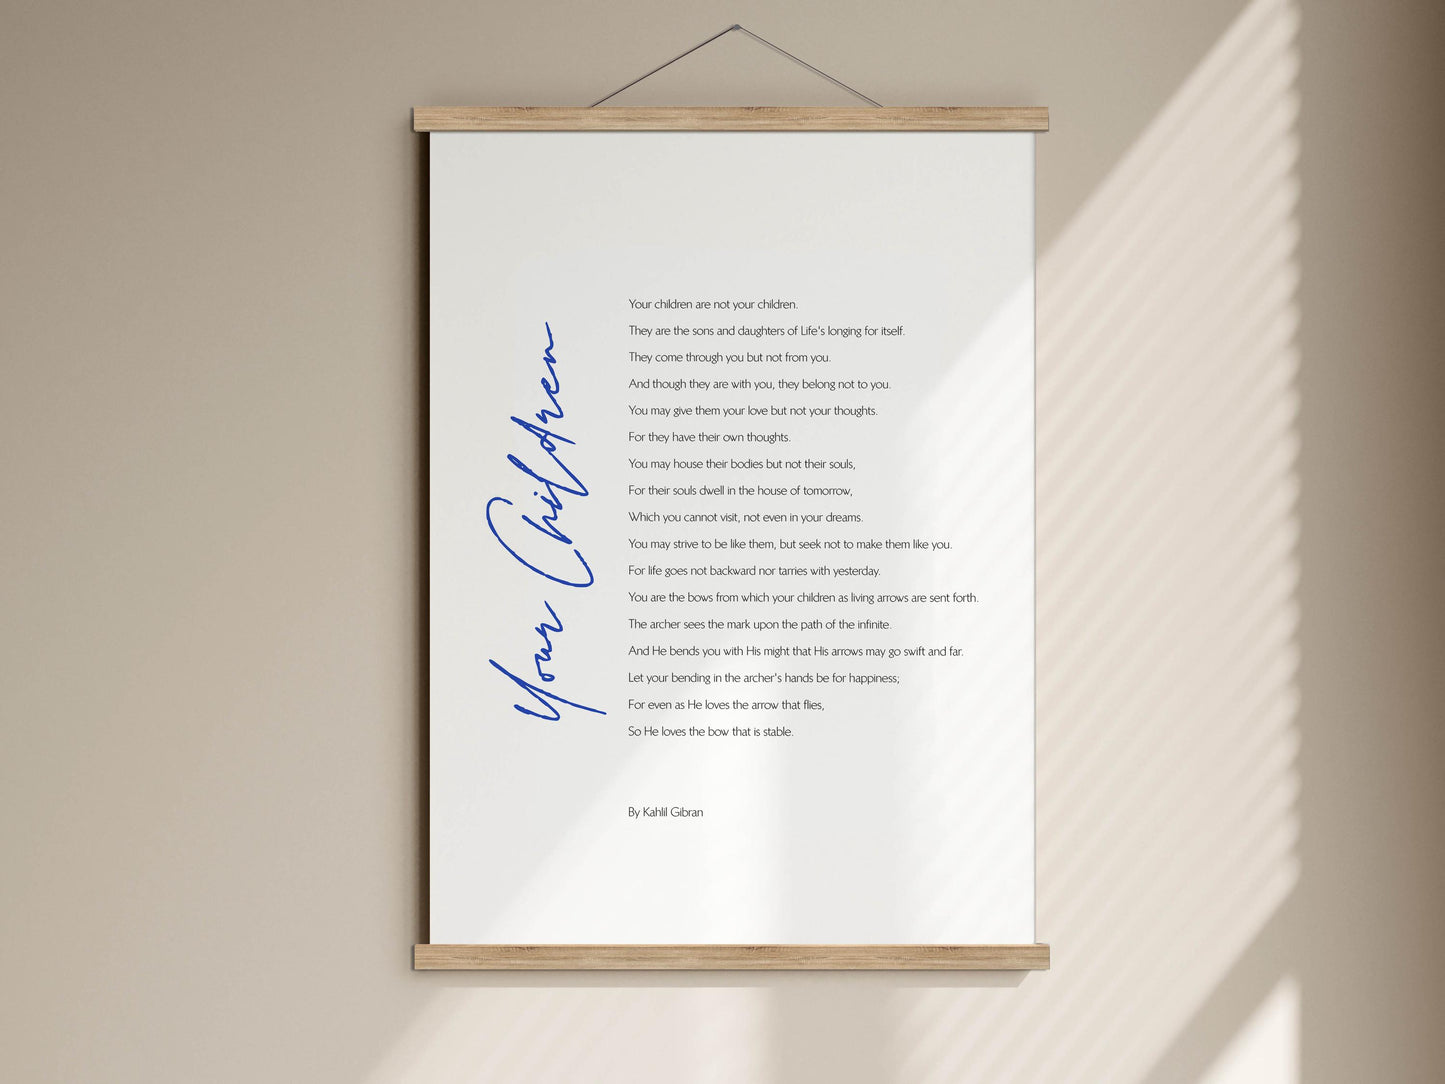 Your Children
Your children are not your children.
They are the sons and daughters of Life's longing for itself.
They come through you but not from you.
And though they are with you, they belong not to you.
You may give them your love but not your thoughts.
For they have their own thoughts.
You may house their bodies but not their souls,
For their souls dwell in the house of tomorrow,
Which you cannot visit, not even in your dreams.
You may strive to be like them, but seek not to make them like you.
For life goes not backward nor tarries with yesterday.
You are the bows from which your children as living arrows are sent forth.
The archer sees the mark upon the path of the infinite.
And He bends you with His might that His arrows may go swift and far.
Let your bending in the archer's hands be for happiness;
For even as He loves the arrow that flies,
So He loves the bow that is stable.
By Kahlil Gibran